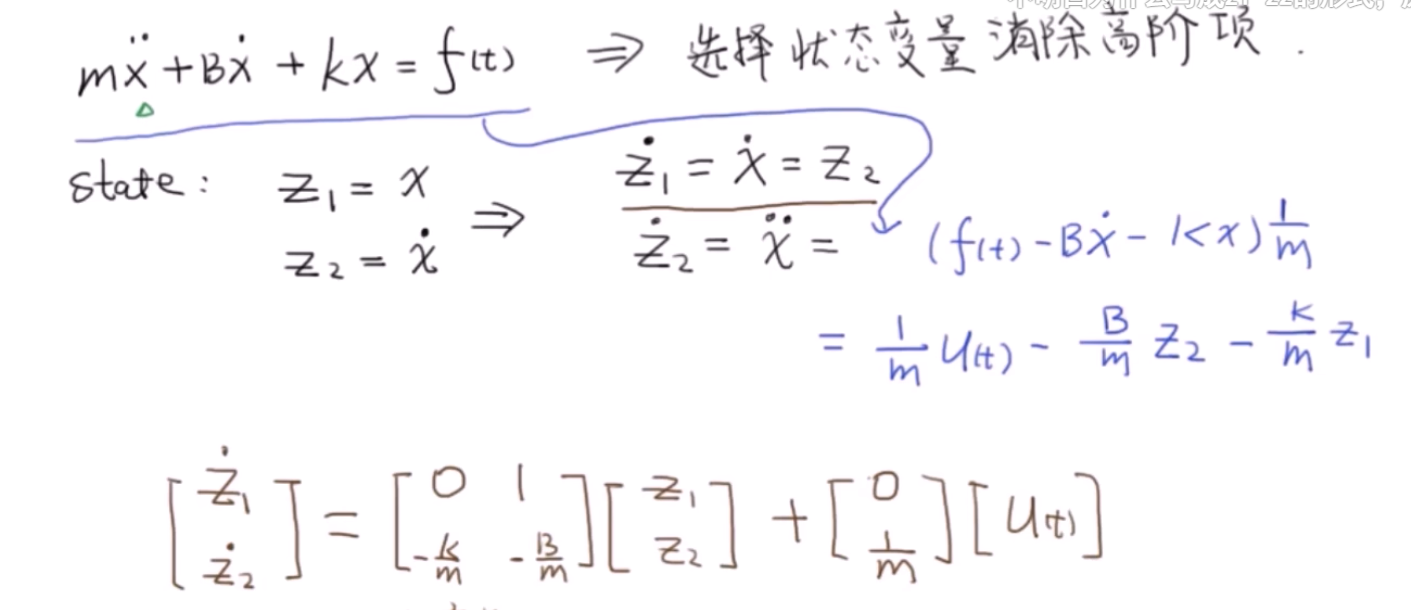 mẍ + Bẋ + kx = f(t) ⇒ 选择状态变量消除高阶项.
state: z₁ = x ⇒ ż₁ = ẋ = z₂
z₂ = ẋ ż₂ = ẍ = (f(t) - Bẋ - kx) 1/m
= 1/m u(t) - B/m z₂ - k/m z₁
[ż₁; ż₂] = [0 1; -k/m -B/m] [z₁; z₂] + [0; 1/m] [u(t)]